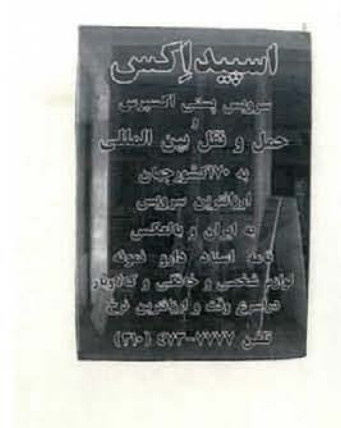 اسپیداِکس
سرویس پستی اکسپرس
و
حمل و نقل بین المللی
به ۱۷۰کشورجهان
ارزانترین سرویس
به ایران و بالعکس
نامه اسناد دارو نمونه
لوازم شخصی و خانگی و کادوئی
دراسرع وقت و ارزانترین نرخ
تلفن ۷۷۷۷-۴۷۳ (۳۱۰)